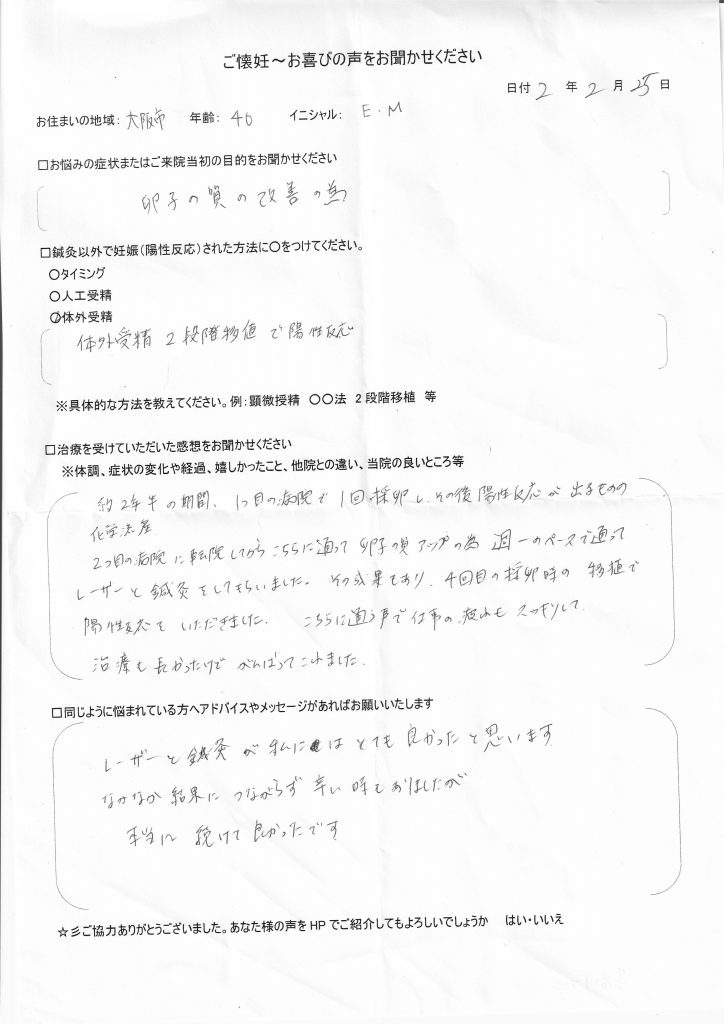 ご懐妊～お喜びの声をお聞かせください
日付 2 年 2 月 25 日
お住まいの地域: 大阪市 年齢: 40 イニシャル: E.M
□お悩みの症状またはご来院当初の目的をお聞かせください
卵子の質の改善の為
□鍼灸以外で妊娠(陽性反応)された方法に〇をつけてください。
〇タイミング
〇人工受精
〇体外受精
体外受精 2段階移値で陽性反応
※具体的な方法を教えてください。例:顕微授精 〇〇法 2段階移植 等
□治療を受けていただいた感想をお聞かせください
※体調、症状の変化や経過、嬉しかったこと、他院との違い、当院の良いところ等
約2年半の期間、1つ目の病院で1回採卵し、その後陽性反応が出るものの
化学流産
2つ目の病院に転院してからこちらに通って卵子の質アップの為週一のペースで通って
レーザーと鍼灸をしてもらいました。その成果もあり、4回目の採卵時の移植で
陽性反応をいただきました。こちらに通う事で仕事の疲れもスッキリして
治療も長かったけどがんばってこれました。
□同じように悩まれている方へアドバイスやメッセージがあればお願いいたします
レーザーと鍼灸が私にはとても良かったと思います
なかなか結果につながらず辛い時もありましたが
本当に続けて良かったです
☆彡ご協力ありがとうございました。あなた様の声をHPでご紹介してもよろしいでしょうか はい・いいえ